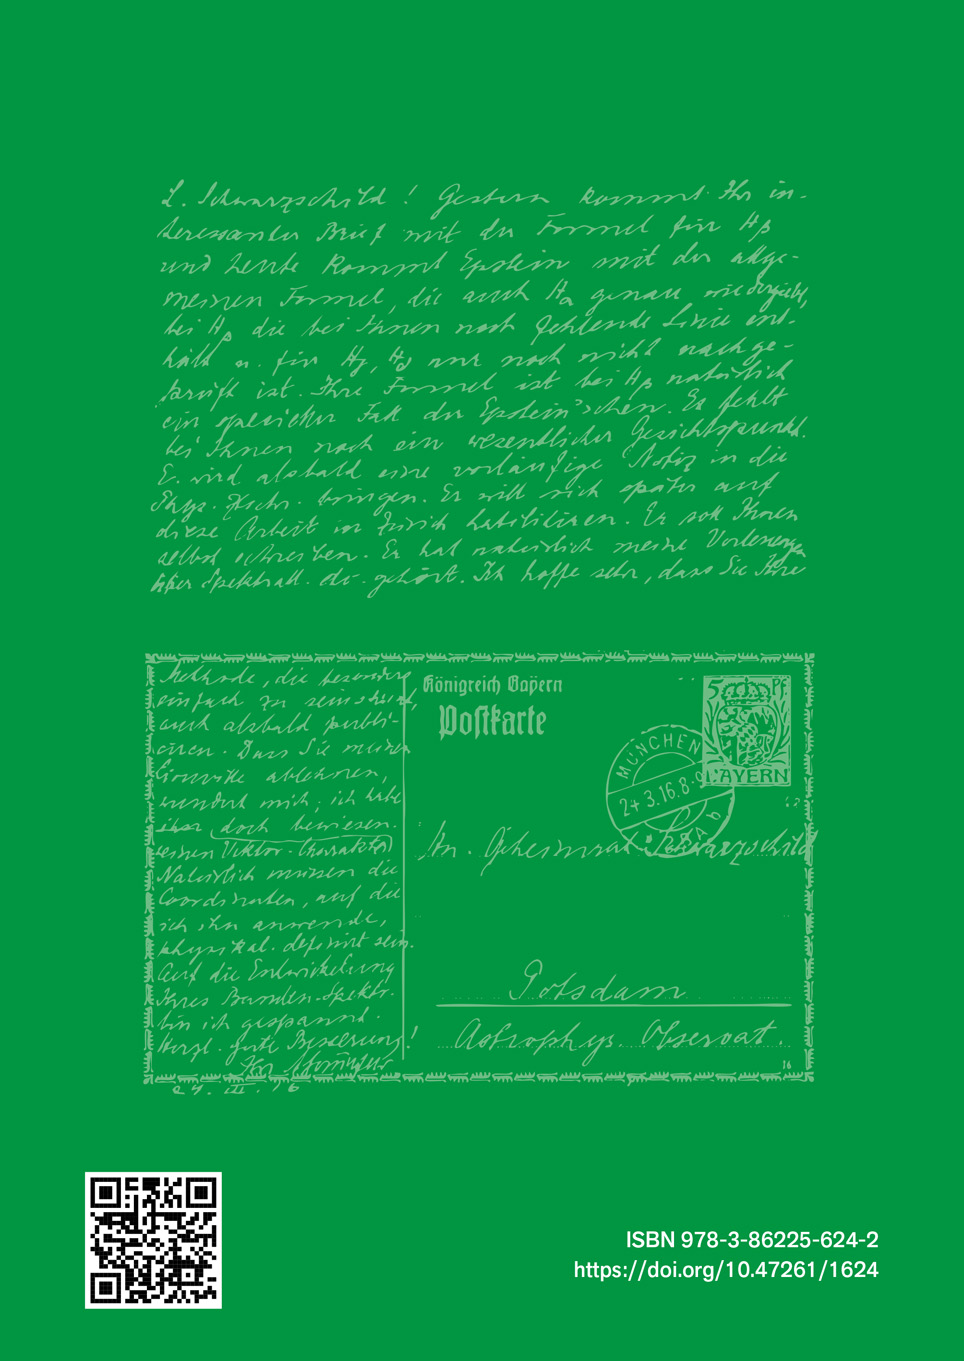 L. Schwarzschild! Gestern kommt Ihr in-
teressanter Brief mit der Formel für Hβ
und heute kommt Epstein mit der allge-
meinen Formel, die auch Hα genau wiedergiebt,
bei Hβ die bei Ihnen noch fehlende Linie ent-
hält u. für Hγ, Hδ nur noch nicht nachge-
prüft ist. Ihre Formel ist bei Hβ natürlich
ein spezieller Fall der Epstein'schen. Es fehlt
bei Ihnen noch ein wesentlicher Gesichtspunkt.
E. wird alsbald eine vorläufige Notiz in die
Phys. Zschr. bringen. Er will sich später auf
diese Arbeit in Zürich habilitieren. Er soll Ihnen
selbst schreiben. Er hat natürlich meine Vorlesungen
über Spektrall. etc. gehört. Ich hoffe sehr, dass Sie Ihre
Methode, die besonders
einfach zu sein scheint,
auch alsbald publi-
ciren. Dass Sie meinen
ablehnen,
wundert mich; ich habe
doch bewiesen
seinen Vektor-Charakter
Natürlich müssen die
Coordinaten, auf die
ich ihn anwende,
physikal. definirt sein.
Auf die Entwickelung
Ihres Banden-Spektr.
bin ich gespannt.
Herzl. gute Besserung!
Ihr A. Sommerfeld
24. III. 16
Königreich Bayern
Postkarte
5 Pf.
BAYERN
MÜNCHEN
24.3.16.8-9
An. Geheimrat Schwarzschild
Potsdam
Astrophys. Observat.
16
ISBN 978-3-86225-624-2
https://doi.org/10.47261/1624